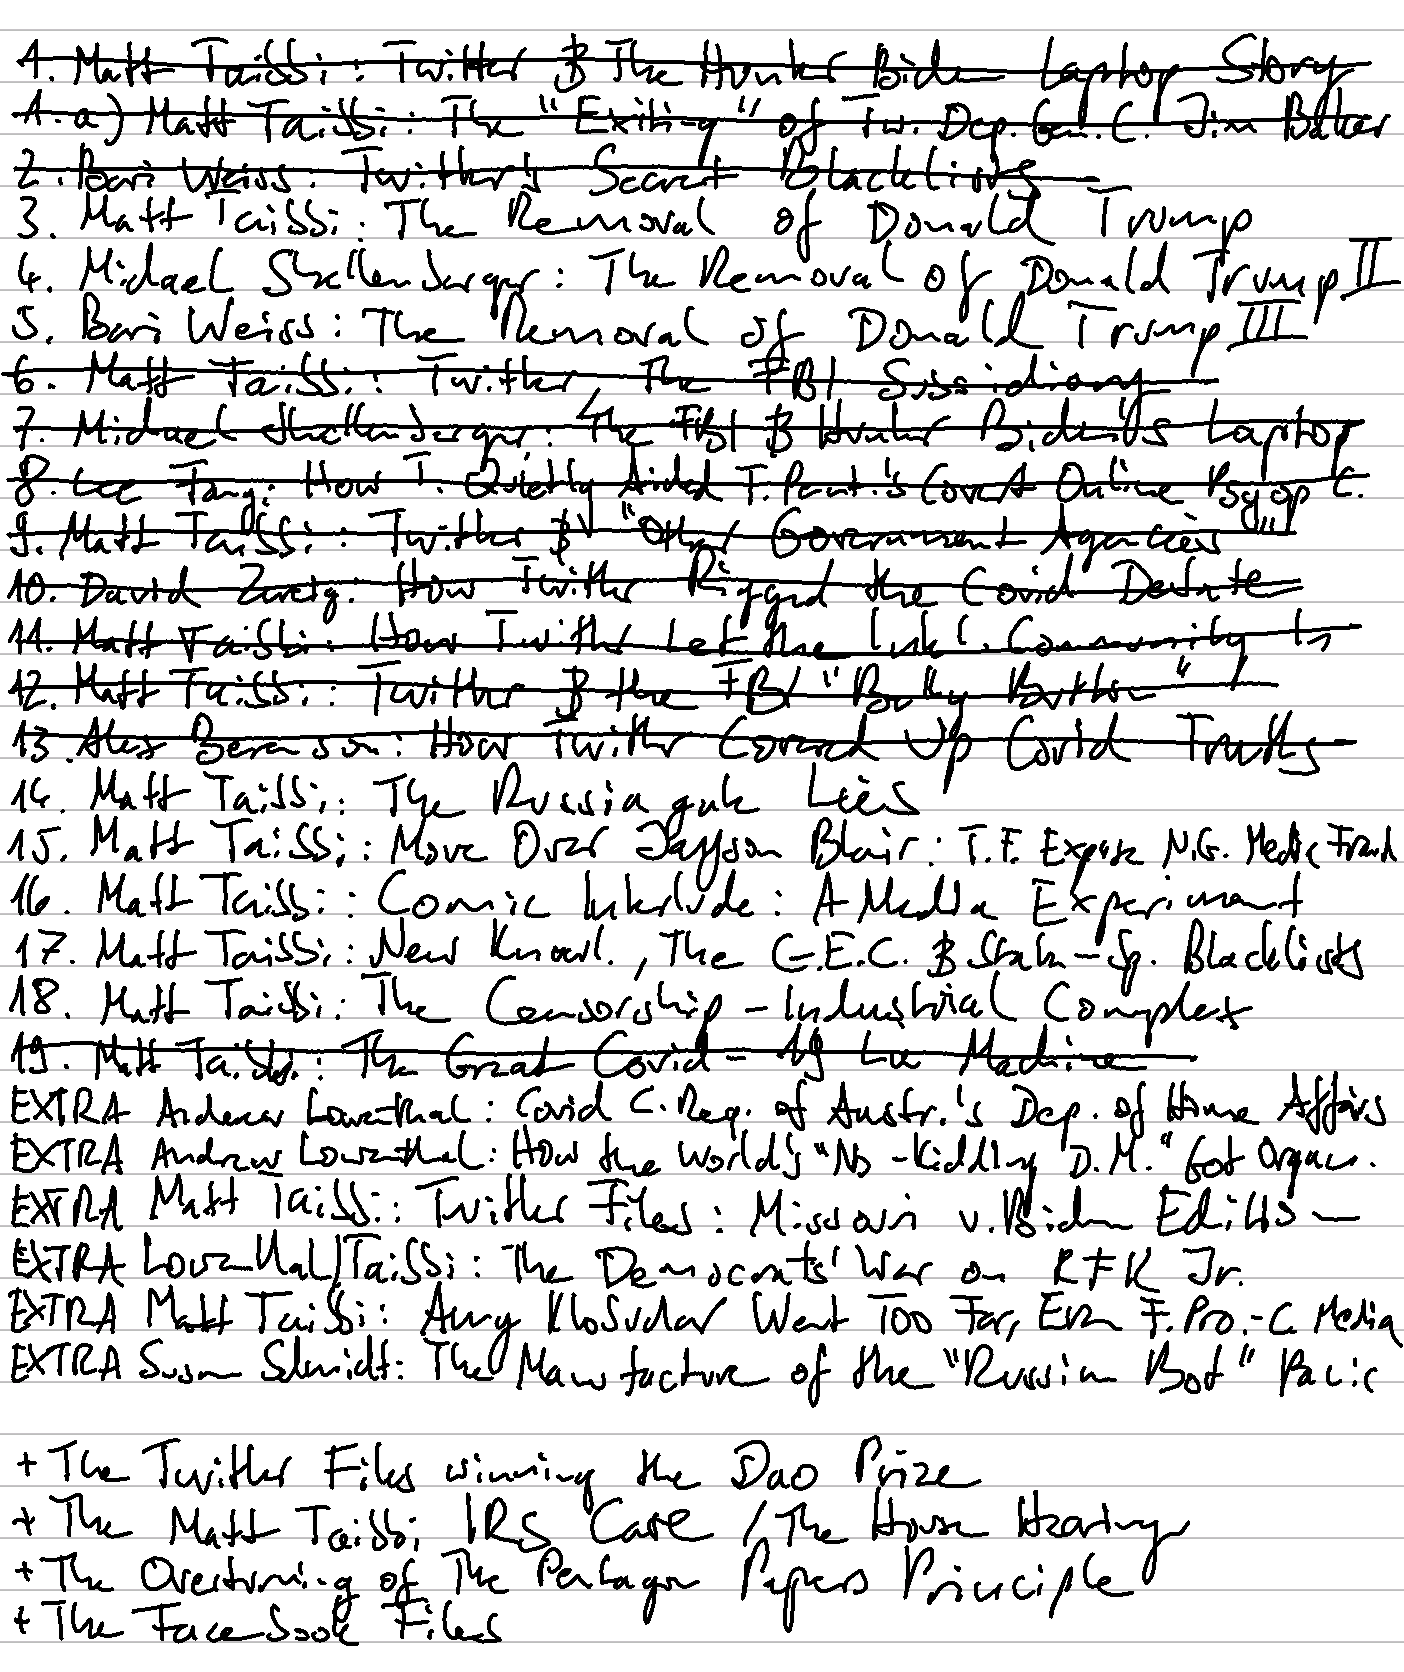 1. Matt Taibbi: Twitter & The Hunter Biden Laptop Story
1. a) Matt Taibbi: The "Exiting" of Tw. Dep. Gen. C. Jim Baker
2. Bari Weiss: Twitter's Secret Blacklists
3. Matt Taibbi: The Removal of Donald Trump
4. Michael Shellenberger: The Removal of Donald Trump II
5. Bari Weiss: The Removal of Donald Trump III
6. Matt Taibbi: Twitter, The FBI Subsidiary
7. Michael Shellenberger: The FBI & Hunter Biden's Laptop
8. Lee Fang: How T. Quietly Aided T. Pent.'s Covert Online PsyOp C.
9. Matt Taibbi: Twitter & "Other Government Agencies"
10. David Zweig: How Twitter Rigged the Covid Debate
11. Matt Taibbi: How Twitter Let the Intel. Community In
12. Matt Taibbi: Twitter & the FBI "Belly Button"
13. Alex Berenson: How Twitter Covered Up Covid Truths
14. Matt Taibbi: The Russiagate Lies
15. Matt Taibbi: Move Over Jayson Blair: T.F. Expose N.G. Media Fraud
16. Matt Taibbi: Comic Interlude: A Media Experiment
17. Matt Taibbi: New Knowl., The G.E.C. & State-Sp. Blacklists
18. Matt Taibbi: The Censorship-Industrial Complex
19. Matt Taibbi: The Great Covid-19 Lie Machine
EXTRA Andrew Lowenthal: Covid C. Req. of Austr.'s Dep. of Home Affairs
EXTRA Andrew Lowenthal: How the World's "No-Kidding D.M." Got Organ.
EXTRA Matt Taibbi: Twitter Files: Missouri v. Biden Edit
EXTRA Lowenthal/Taibbi: The Democrats' War on RFK Jr.
EXTRA Matt Taibbi: Amy Klobuchar Went Too Far, Even F. Pro.-C. Media
EXTRA Susan Schmidt: The Manufacture of the "Russian Bot" Panic
+ The Twitter Files winning the Dao Prize
+ The Matt Taibbi IRS Case / The House Hearing
+ The Overturning of The Pentagon Papers Principle
+ The Facebook Files